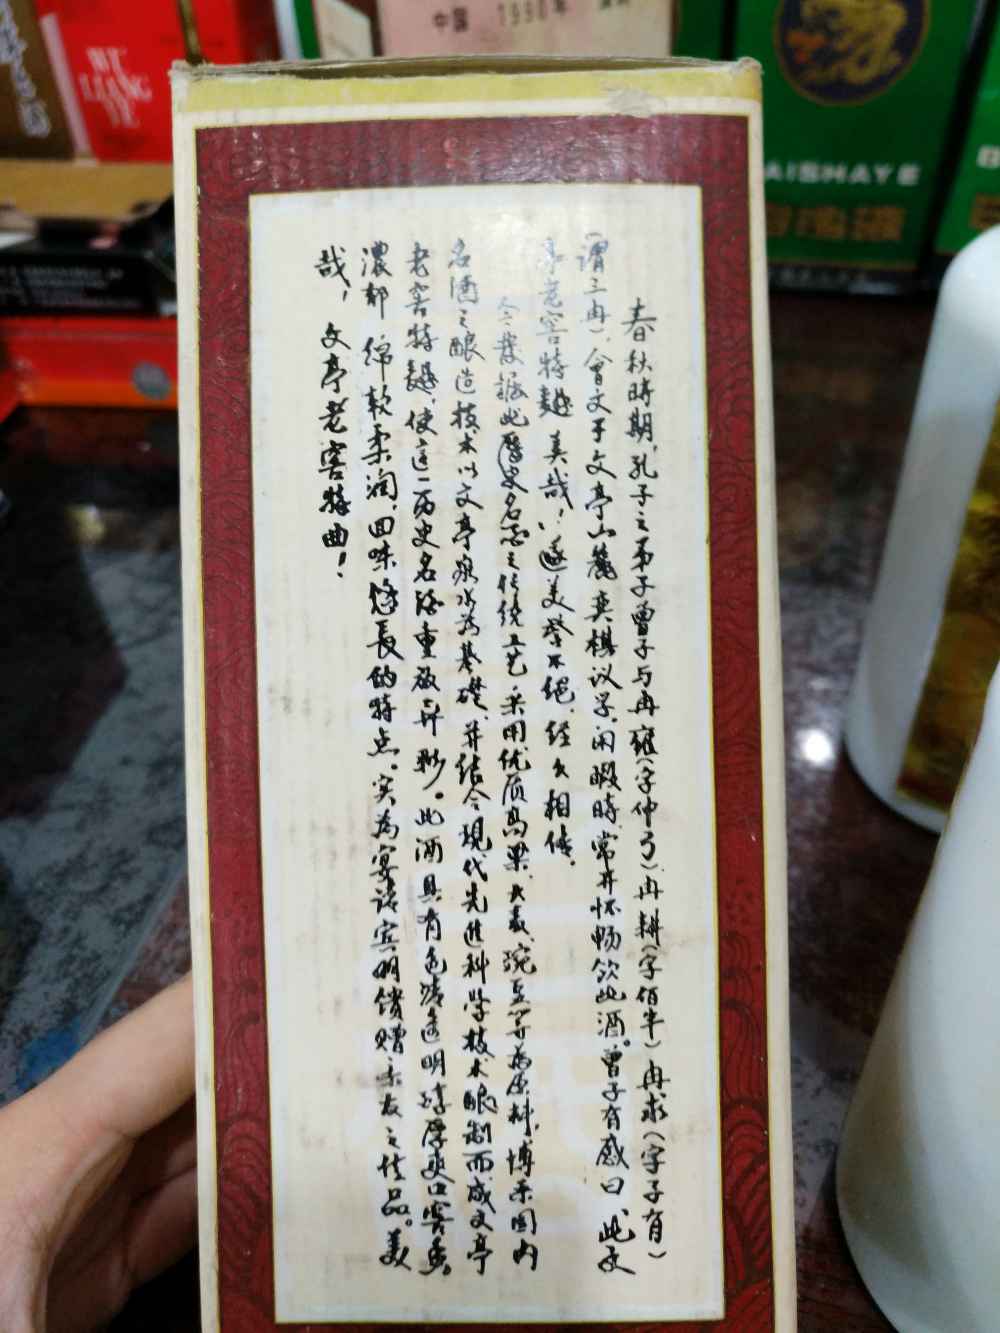 中国 1990年
WU
LIANG
YE
AISHAYE
春秋時期，孔子之弟子曾子与冉雍（字仲弓）冉耕（字伯牛）冉求（字子有）
（谓三冉），會文于文亭山麓奕棋议学，闲暇時常开怀畅饮此酒。曾子有感曰 此文
亭老窖特麯 美哉！遂美誉不绝 经久相传。
今发掘此歷史名酒之传统工艺 采用优质高粱、大麦、豌豆等为原料，博采国内
名酒之酿造技术以文亭泉水为基礎、并结合现代先進科学技术酿制而成文亭
老窖特麯，使这一历史名酒重放异彩。此酒具有色清透明 醇厚爽口 窖香
濃郁 绵软柔润，回味悠長的特点。实为宴请宾朋馈赠亲友之佳品。美
哉， 文亭老窖特曲！